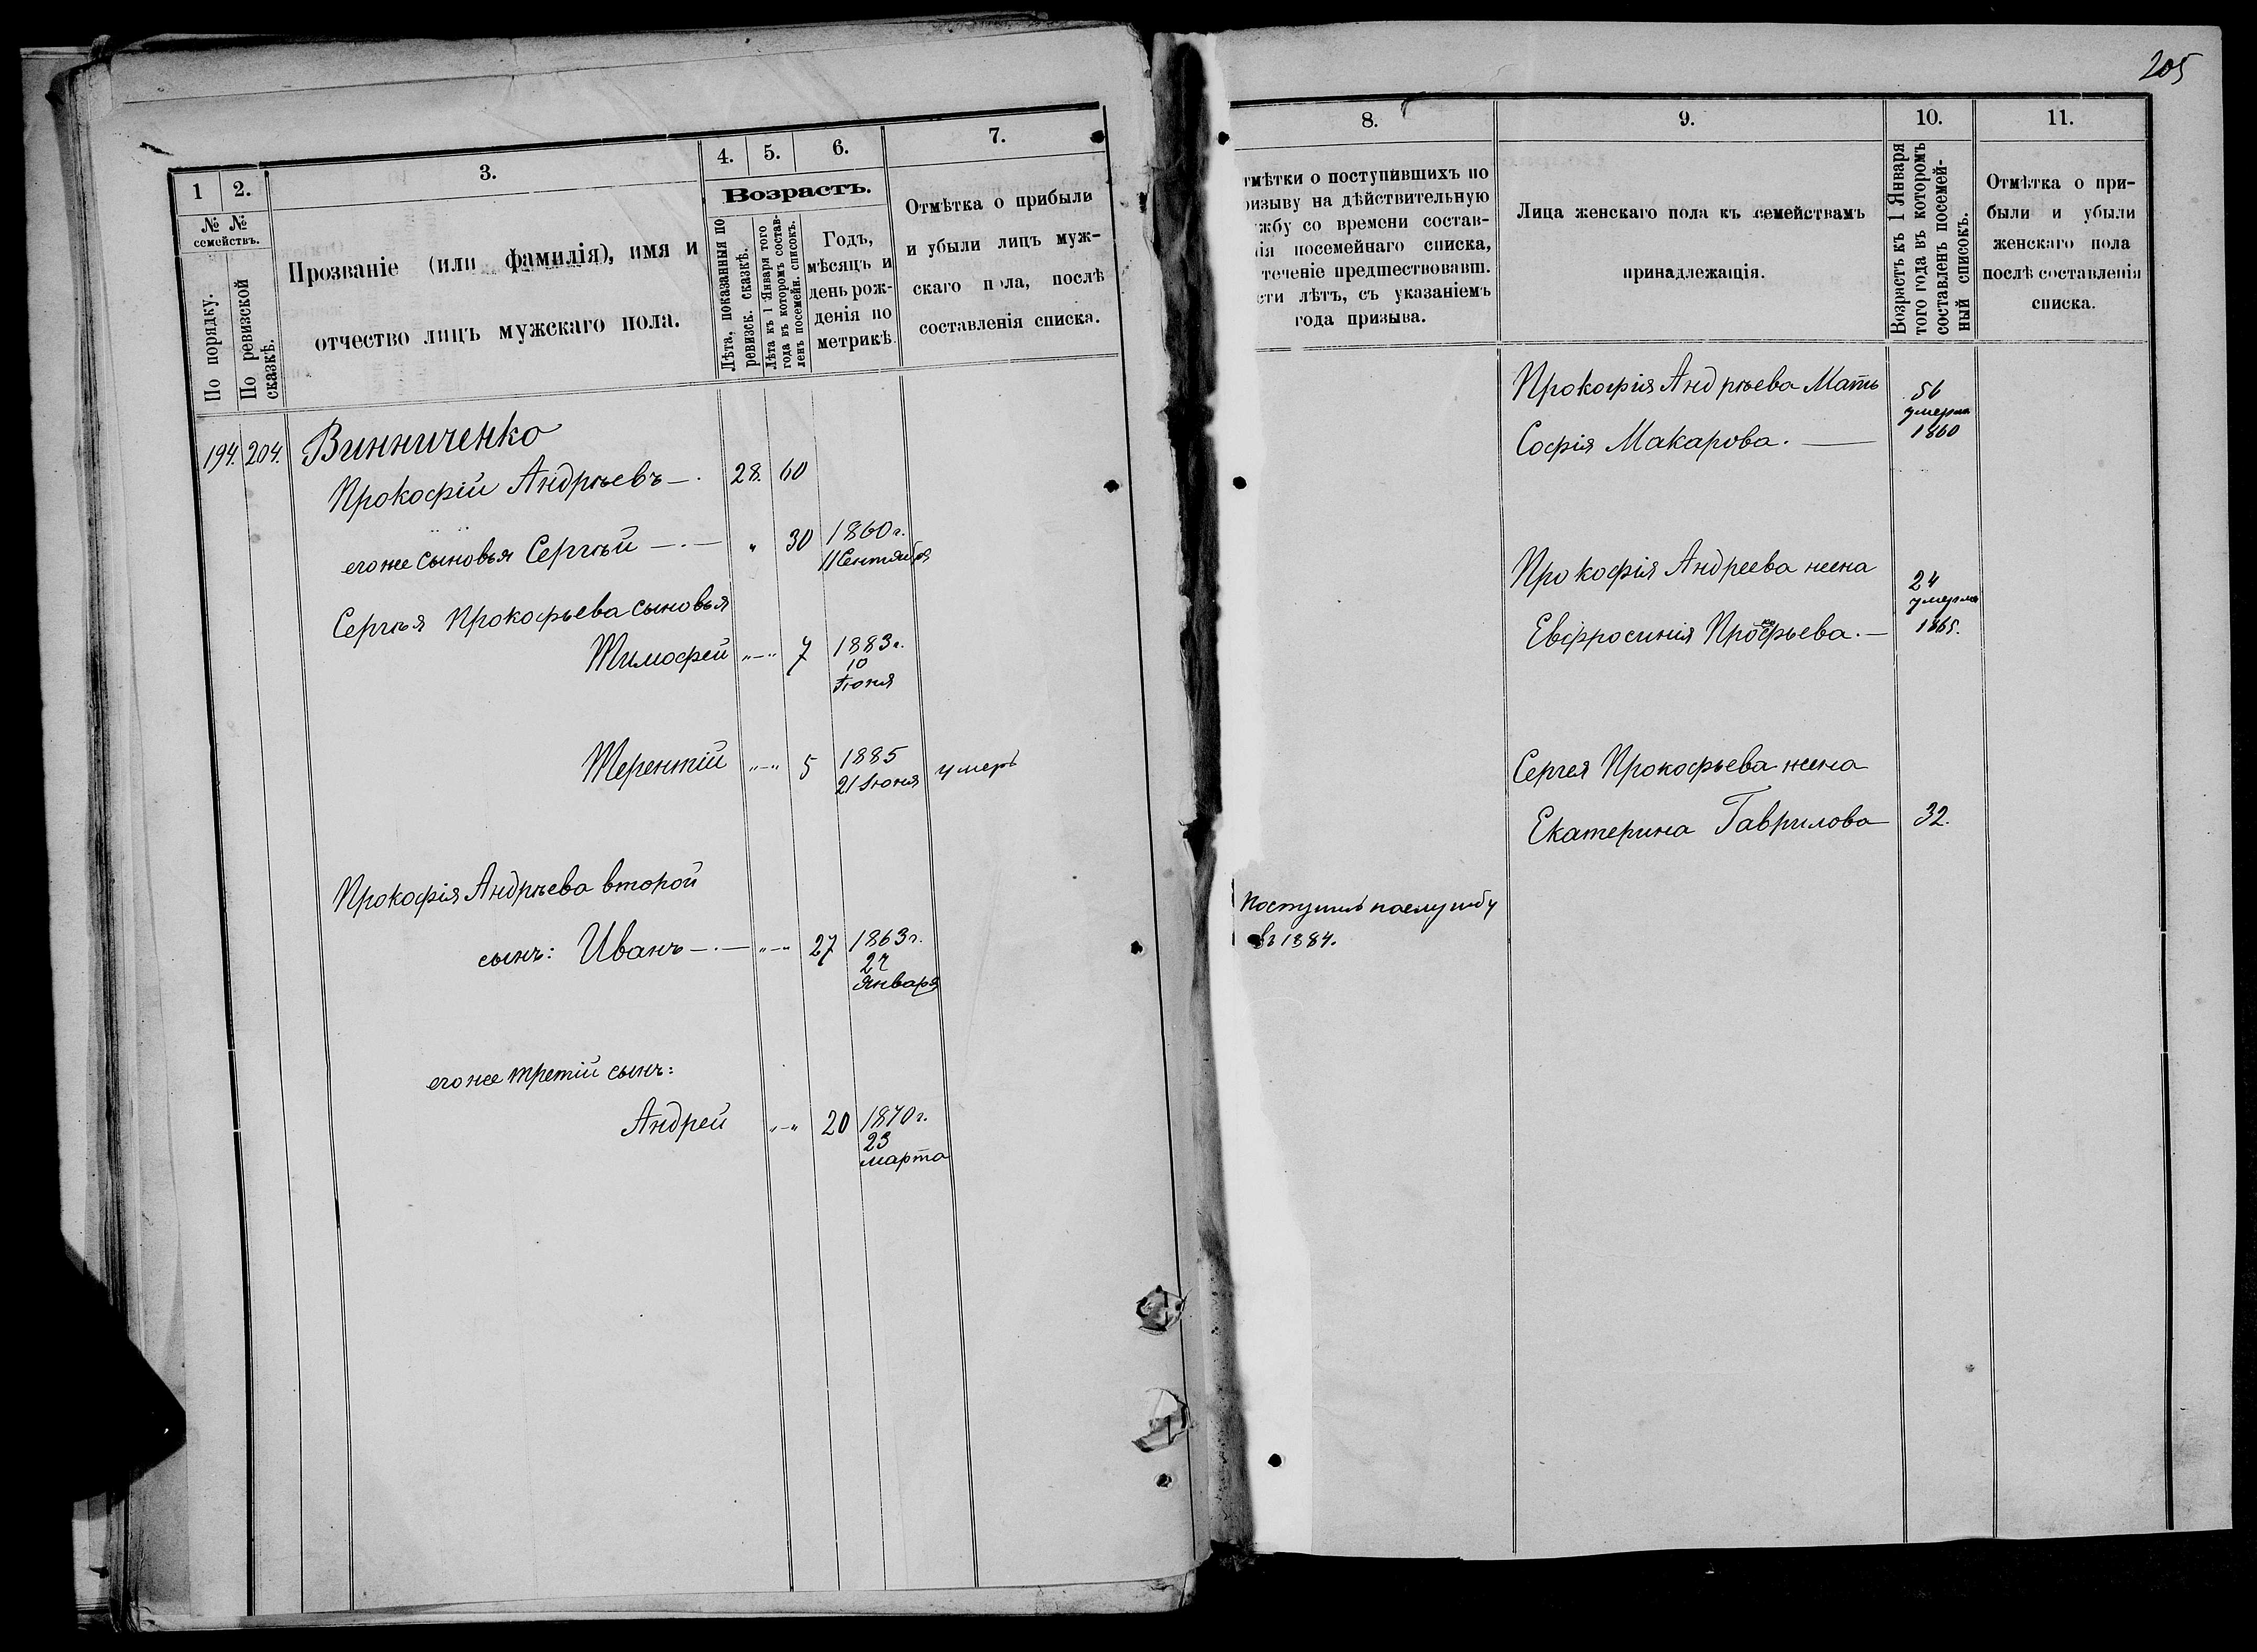 205
1
2.
3.
4.
5.
6.
7.
№ №
семействъ.
По порядку.
По ревизской
сказкѣ.
Прозваніе (или фамилія), имя и
отчество лицъ мужскаго пола.
Возрастъ.
Лѣта, показанныя по
ревизск. сказкѣ.
Лѣта къ 1 Января того
года въ которомъ состав-
ленъ посемейн. списокъ.
Годъ,
мѣсяцъ и
день рож-
денія по
метрикѣ.
Отмѣтка о прибыли
и убыли лицъ муж-
скаго пола, послѣ
составленія списка.
194. 204. Винниченко
Прокофій Андрѣевъ —. 28. 60
егоже сыновья Сергѣй —.— „ 30 1860 г.
11 Сентября
Сергѣя Прокофьева сыновья
Тимофей „—„ 7 1883 г.
10
Іюня
Терентій „—„ 5 1885
21 Іюня умеръ
Прокофія Андрѣева второй
сынъ: Иванъ —.— „—„ 27 1863 г.
27
Января
егоже третій сынъ:
Андрей „—„ 20 1870 г.
23
марта
8.
9.
10.
11.
тмѣтки о поступившихъ по
ризыву на дѣйствительную
жбу со времени состав-
ія посемейнаго списка,
теченіе предшествовавш.
сти лѣтъ, съ указаніемъ
года призыва.
Лица женскаго пола къ семействамъ
принадлежащія.
Возрастъ къ 1 Января
того года въ которомъ
составленъ посемей-
ный списокъ.
Отмѣтка о при-
были и убыли
женскаго пола
послѣ составленія
списка.
Прокофія Андрѣева Мать
Софія Макарова. —
56
умерла
1860
Прокофія Андреева жена
Евфросинія Прокофьева. —
24
умерла
1865.
Сергея Прокофьева жена
Екатерина Гаврилова 32.
Поступилъ наслужбу
въ 1884.